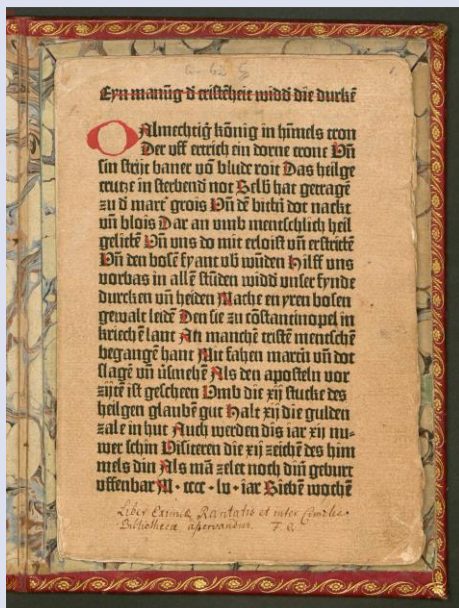 Eyn manũg d̄ cristẽheit widd̄ die durkẽ
O Almechtig kõnig in hĩmels tron
Der uff ertrich ein dorne crone Uñ
sin strijt baner võ blude roit Das heilge
crutze in sterbend not Selb hat getragẽ
zu d̄ mart grois Uñ dẽ bittñ dot nackt
uñ blois Dar an umb mentschlich heil
gelittẽ Uñ uns do mit erloist uñ erstrittẽ
Uñ den bosẽ fyant ub wũden Hilff uns
vorbas in allẽ stũden widd̄ unser fynde
durcken uñ heiden Mache en yren bosen
gewalt leidẽ Den sie zu cõstantinopel in
kriechẽ lant An manchẽ cristẽ mentschẽ
begangẽ hant Mit fahen martñ uñ dot
slagẽ uñ v̈smehẽ Als den aposteln vor
zijtẽ ist gescheen Umb die xij stucke des
heilgen glaubẽ gut Halt xij die gulden
zale in hut Auch werden dis iar xij nu-
wer schin Visiteren die xij zeichẽ des him
mels din Als mã zelet noch dĩn geburt
uffenbar M · cccc · lv · iar Siebẽ wochẽ
Liber Eximiæ Raritatis et inter Cimelia
Bibliothecæ asservandus. F. G.